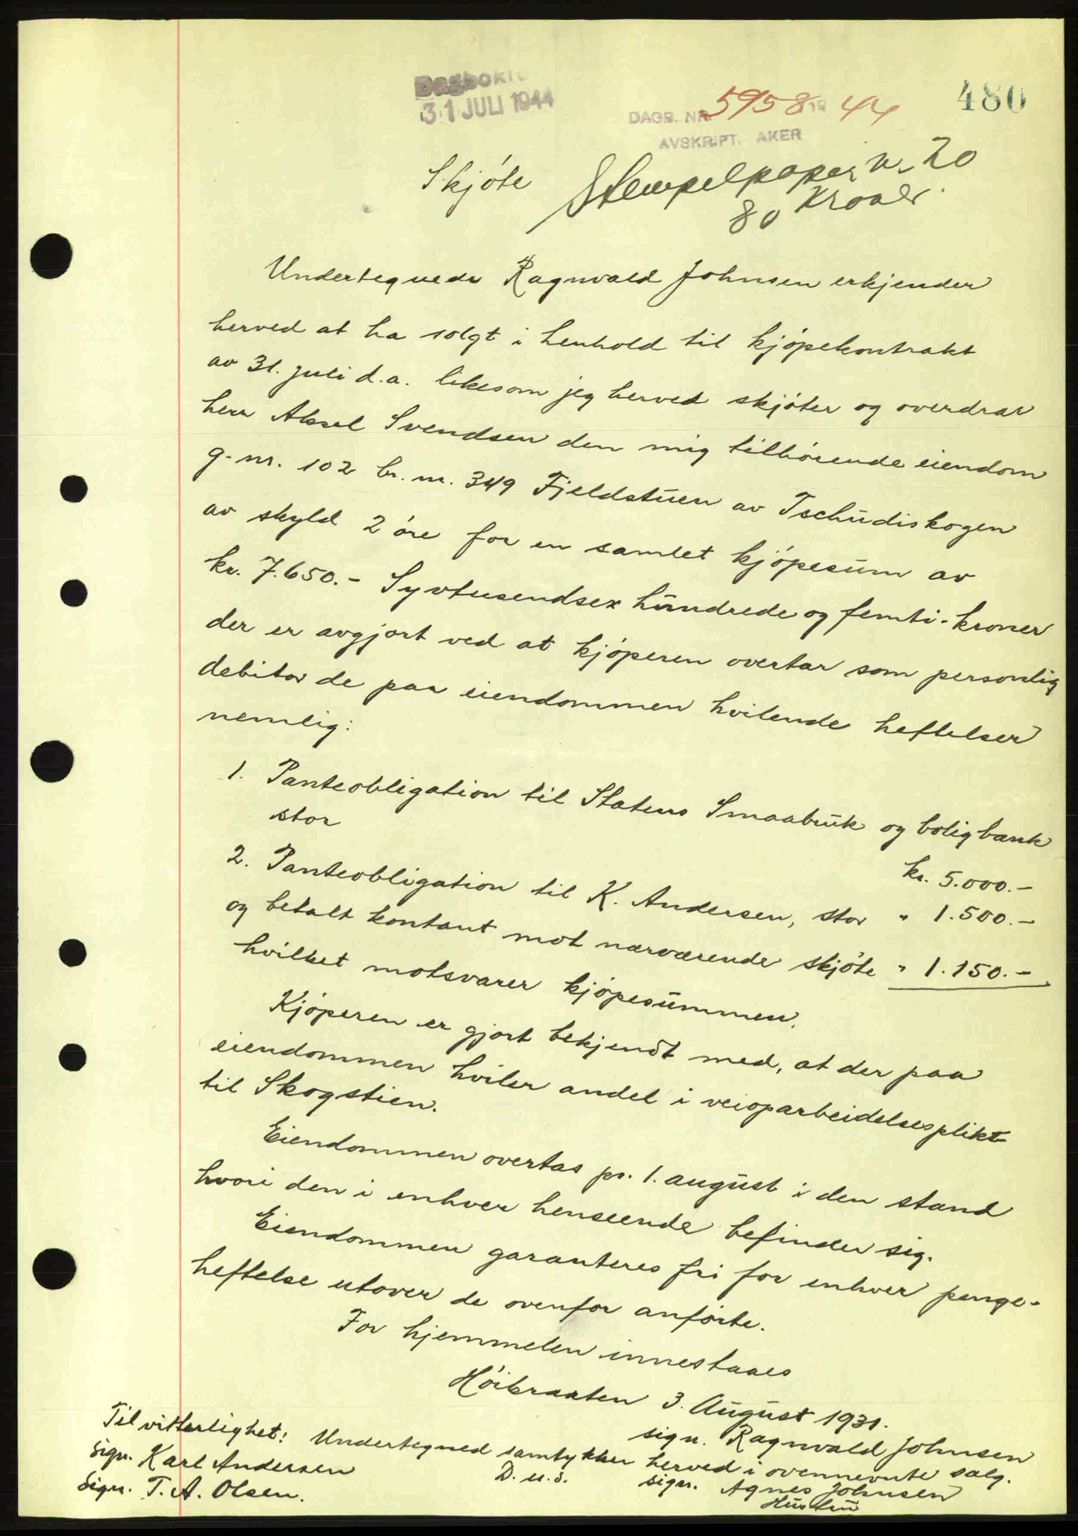 Dagbokf
31 JULI 1944
DAGB. NR. 5958 19 44
AVSKRIPT. AKER
480
Skjøte
Stempelpapir n. 20
80 Kroner.
Undertegnede Ragnvald Johnsen erkjender
herved at ha solgt i henhold til kjøpekontrakt
av 31. juli d.a. likesom jeg herved skjøter og overdrar
herr Aksel Svendsen den mig tilhørende eiendom
g. nr. 102 br. nr. 349 Fjeldstuen av Tschudiskogen
av skyld 2 øre for en samlet kjøpesum av
kr. 7.650.- Syvtusendsex hundrede og femti-kroner
der er avgjort ved at kjøperen overtar som personlig
debitor de paa eiendommen hvilende heftelser
nemlig:
1. Panteobligation til Statens Smaabruk og boligbank
stor kr. 5.000.-
2. Panteobligation til K. Andersen, stor " 1.500.-
og betalt kontant mot nærværende skjøte " 1.150.-
hvilket motsvarer kjøpesummen.
Kjøperen er gjort bekjendt med, at der paa
eiendommen hviler andel i veioparbeidelsesplikt
til Skogstien.
Eiendommen overtas pr. 1. august i den stand
hvori den i enhver henseende befinder sig.
Eiendommen garanteres fri for enhver penge-
heftelse utover de ovenfor anførte.
For hjemmelen innestaaes
Høibraaten 3. August 1931.
sign. Ragnvald Johnsen
Til vitterlighet: Undertegned samtykker herved i ovennevnte salg.
sign. Karl Andersen D. u. s. sign. Agnes Johnsen
Sign. T. A. Olsen. Hustru